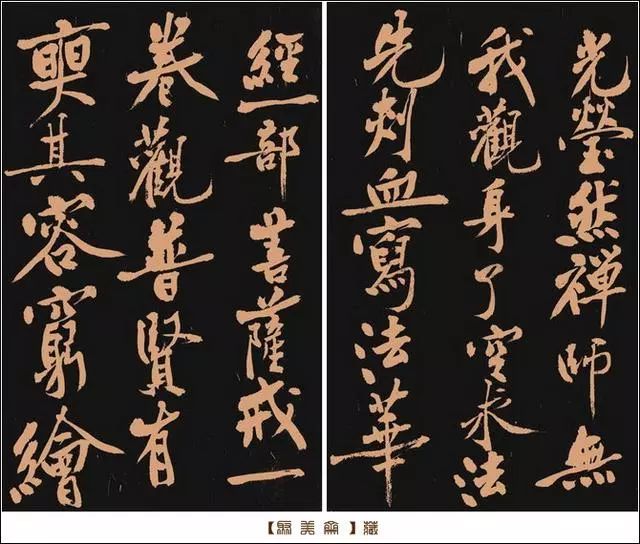 光瑩然禪師無
我觀身了空求法
先刺血寫法華
經一部菩薩戒一
卷觀普賢有
其容窮繪
美 藏